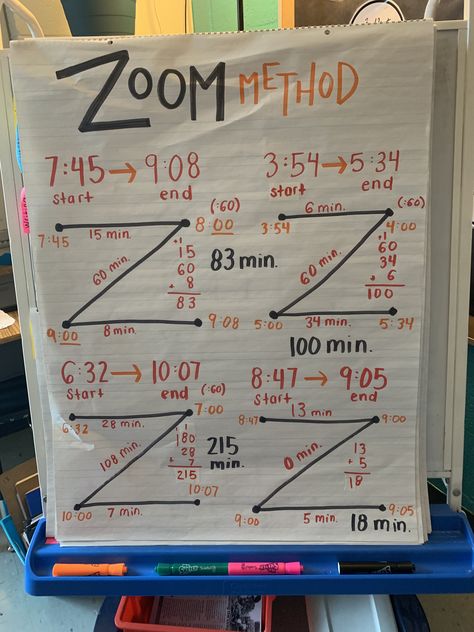 ZOOM METHOD
7:45 → 9:08
start end
(:60)
7:45 15 min. 8:00
60 min.
+1
15
60
+ 8
83
83 min.
9:00 8 min. 9:08
3:54 → 5:34
start end
6 min. (:60)
3:54 4:00
60 min.
+1
60
34
+ 6
100
5:00 34 min. 5:34
100 min.
6:32 → 10:07
start end (:60)
6:32 28 min. 7:00
108 min.
1
180
28
+ 7
215
215
min.
10:00 7 min. 10:07
8:47 → 9:05
start end
8:47 13 min 9:00
0 min.
13
+ 5
18
9:00 5 min. 9:05
18 min.